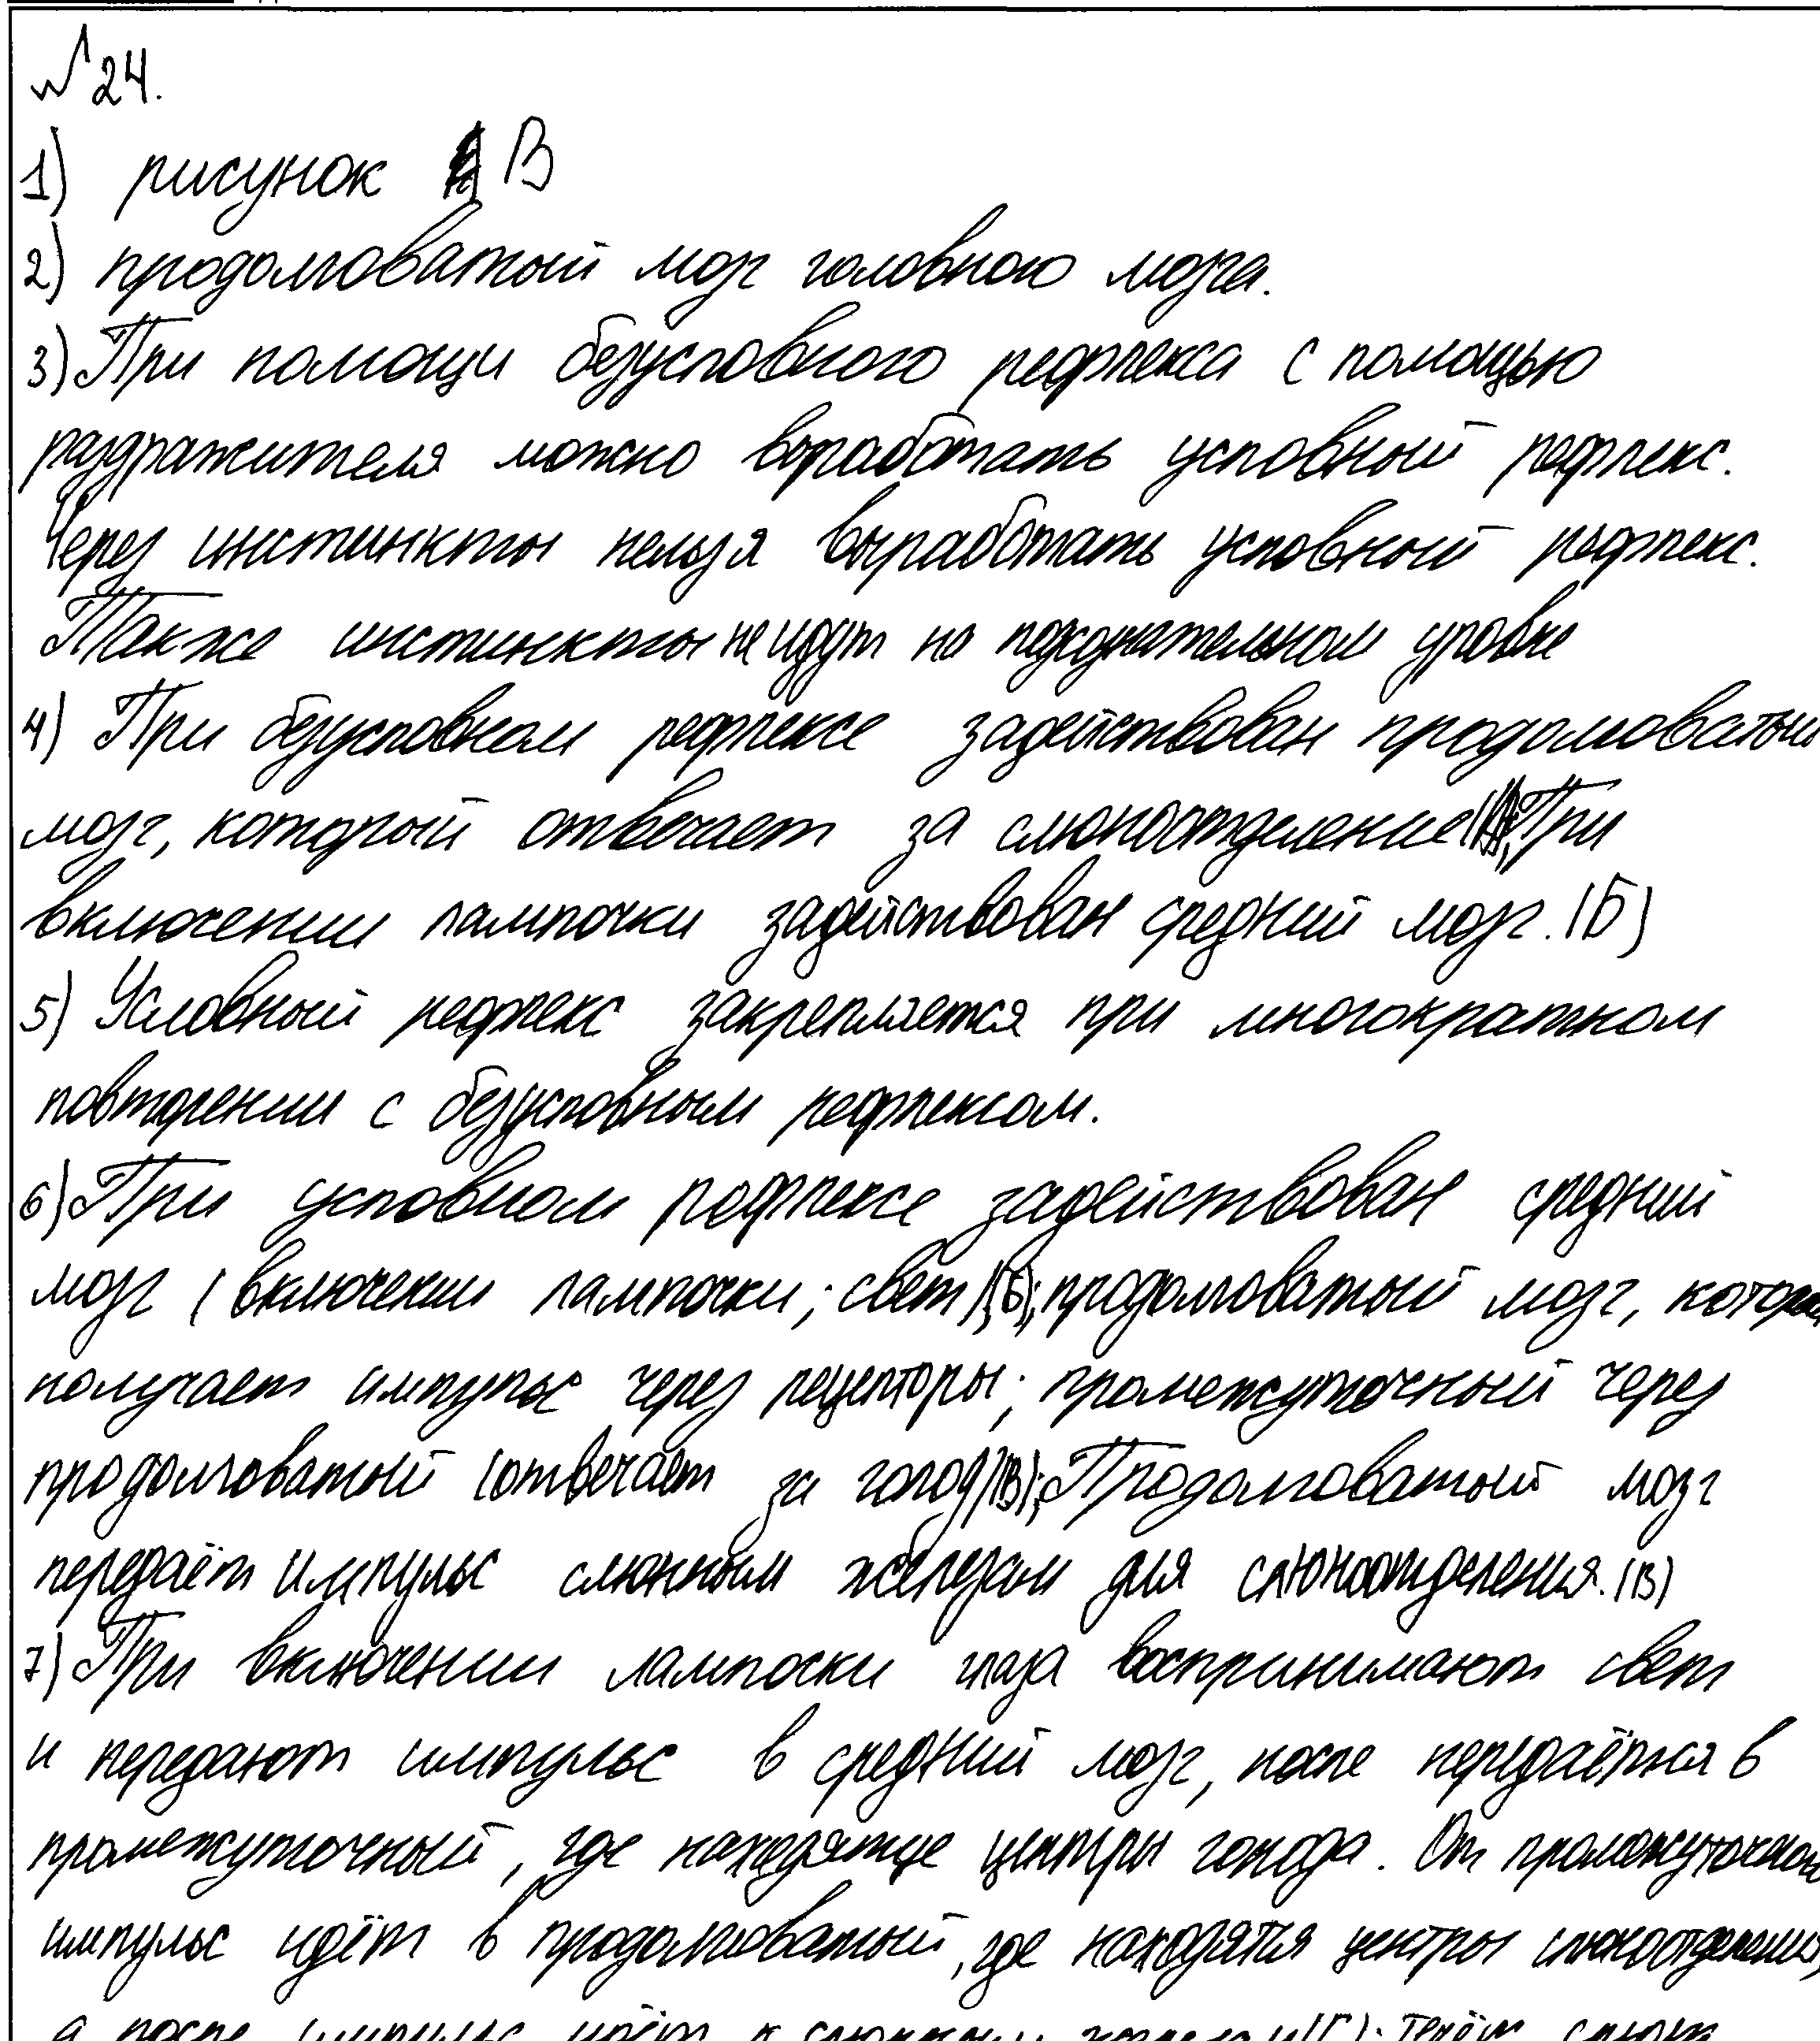 №24.
1) рисунок В
2) продолговатый мозг головного мозга.
3) При помощи безусловного рефлекса с помощью
раздражителя можно выработать условный рефлекс.
Через инстинкты нельзя выработать условный рефлекс.
Также инстинкты не идут на подсознательном уровне
4) При безусловном рефлексе задействован продолговатый
мозг, который отвечает за слюноотделение При
включении лампочки задействован средний мозг. (Б)
5) Условный рефлекс закрепляется при многократном
повторении с безусловным рефлексом.
6) При условном рефлексе задействован средний
мозг (включении лампочки; свет)(Б); продолговатый мозг, который
получает импульс через рецепторы; промежуточный через
продолговатый (отвечает за голод)(В); Продолговатый мозг
передаёт импульс слюнным железам для слюноотделения. (В)
7) При включении лампоски глаза воспринимают свет
и передают импульс в средний мозг, после передаётся в
промежуточный, где находятце центры голода. От промежуточного
импульс идёт в продолговатый, где находятся центры слюноотделения,
а после импульс идёт к слюнным железам(Г). Течёт слюна